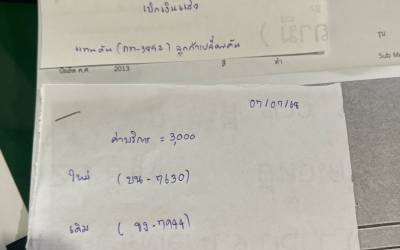 เบิกเงินแล้ว
แทนคัน (กท-3852) ลูกค้าเปลี่ยนคัน
รุ่น
2013
สี
ดำ
Sub Mo
07/07/68
ค่าบริการ = 3,000
ใหม่ (ขน-7630)
เดิม (ขง-7944)